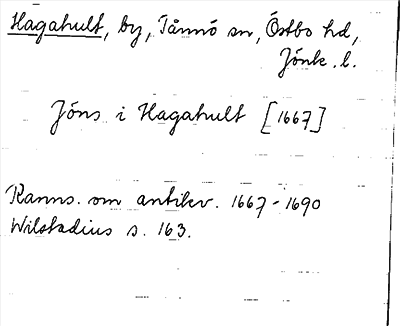 Hagahult, by, Tånnö sn, Östbo hd,
Jönk. l.
Jöns i Hagahult [1667]
Ranns. om antikv. 1667-1690
Wilstadius s. 163.